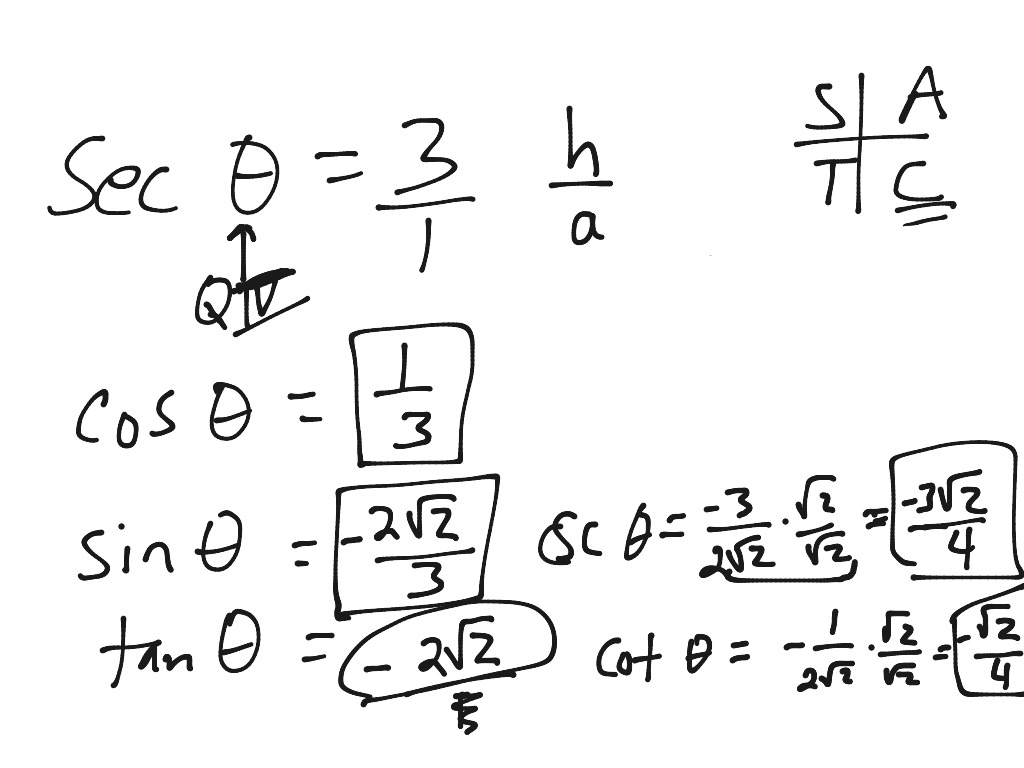 sec θ = 3/1 h/a
S A
T C
QIV
cos θ = 1/3
sin θ = -2√2/3
csc θ = -3/2√2 · √2/√2 = -3√2/4
tan θ = -2√2
cot θ = -1/2√2 · √2/√2 = -√2/4